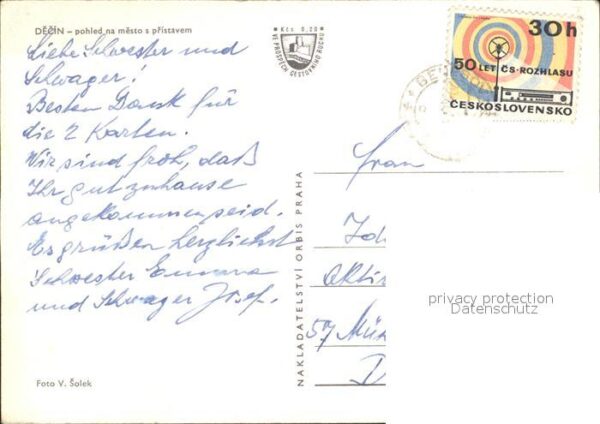 DĚČÍN – pohled na město s přístavem
Liebe Schwester und
Schwager!
Besten Dank für
die 2 Karten.
Wir sind froh, daß
Ihr gut zuhause
angekommen seid.
Es grüßen herzlichst
Schwester Emma
und Schwager Josef.
Foto V. Šolek
Kčs 0,20
VE PROSPĚCH CESTOVNÍHO RUCHU
NAKLADATELSTVÍ ORBIS PRAHA
30h
50 LET ČS. ROZHLASU
ČESKOSLOVENSKO
Frau
privacy protection
Datenschutz
57 Mün
D